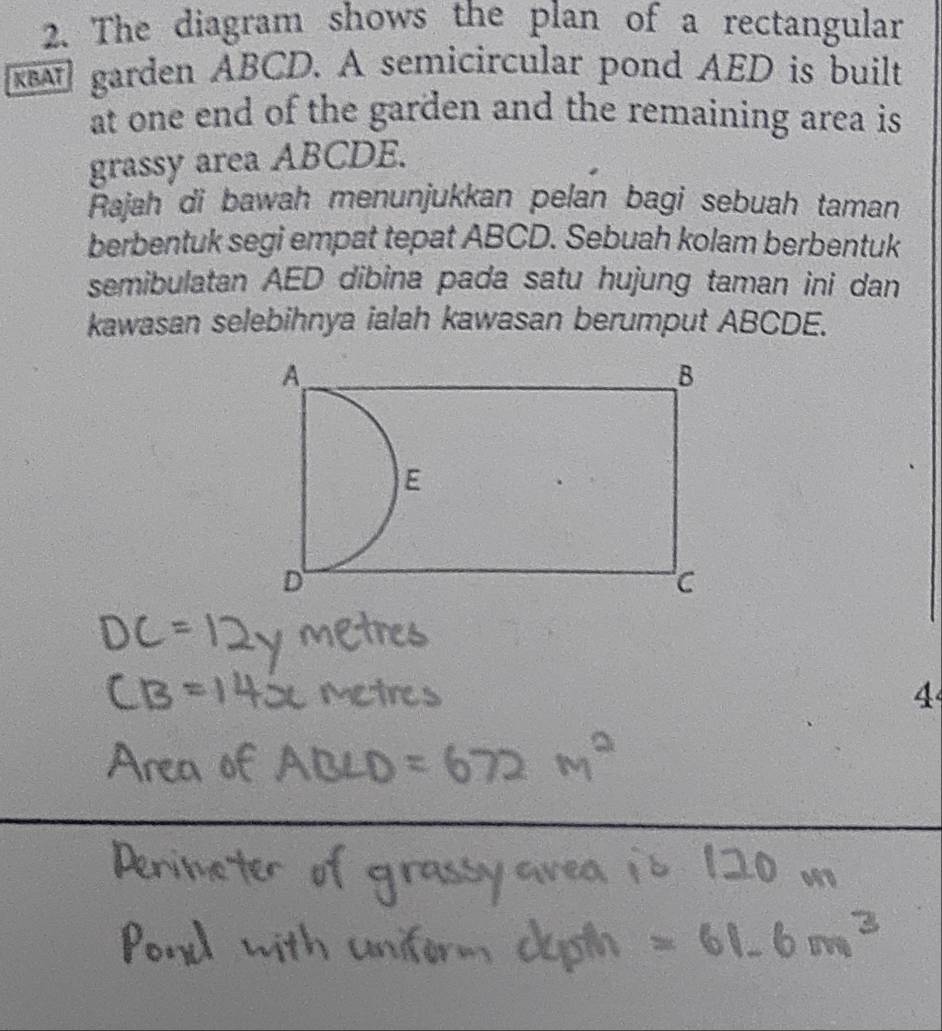 2. The diagram shows the plan of a rectangular
KBAT garden ABCD. A semicircular pond AED is built
at one end of the garden and the remaining area is
grassy area ABCDE.
Rajah di bawah menunjukkan pelan bagi sebuah taman
berbentuk segi empat tepat ABCD. Sebuah kolam berbentuk
semibulatan AED dibina pada satu hujung taman ini dan
kawasan selebihnya ialah kawasan berumput ABCDE.
A B
E
D C
DC = 12y metres
CB = 14x metres
4
Area of ABCD = 672 m²
Perimeter of grassy area is 120 m
Pond with uniform depth = 61.6 m³